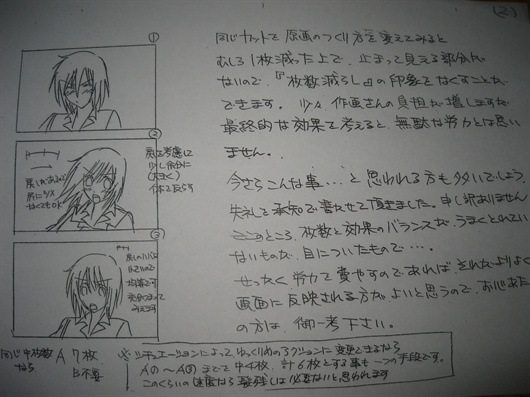 (2)
同じカットで原画のつくり方を変えてみると
むしろ1枚減った上で、止まって見える部分が
ないので、『枚数減らし』の印象をなくすことが
できます。少々、作画さんの負担が増しますが
最終的な効果を考えると、無駄な労力とは思い
ません。
今さらこんな事…と思われる方も多いでしょう。
失礼を承知で書かせて頂きました。申し訳ありません
ところ、枚数と効果のバランスが、うまくとれてい
ないものが、目についたもので…。
せっかく労力を費やすのであれば、それがよりよく
画面に反映される方がよいと思うので、
の方は、御一考下さい。
①
②
戻しを考慮に
少し余分に
(大きく)
体を反らす
③
戻しのハバは
同じ中枚数
なら
A 7枚
B不要
※シチュエーションによって、ゆっくりめのアクションに変更できるなら
A① 〜A③ までを中4枚、計6枚とする事も一つの手段です。
このくらいの速度なら 残しは必要ないと思われます